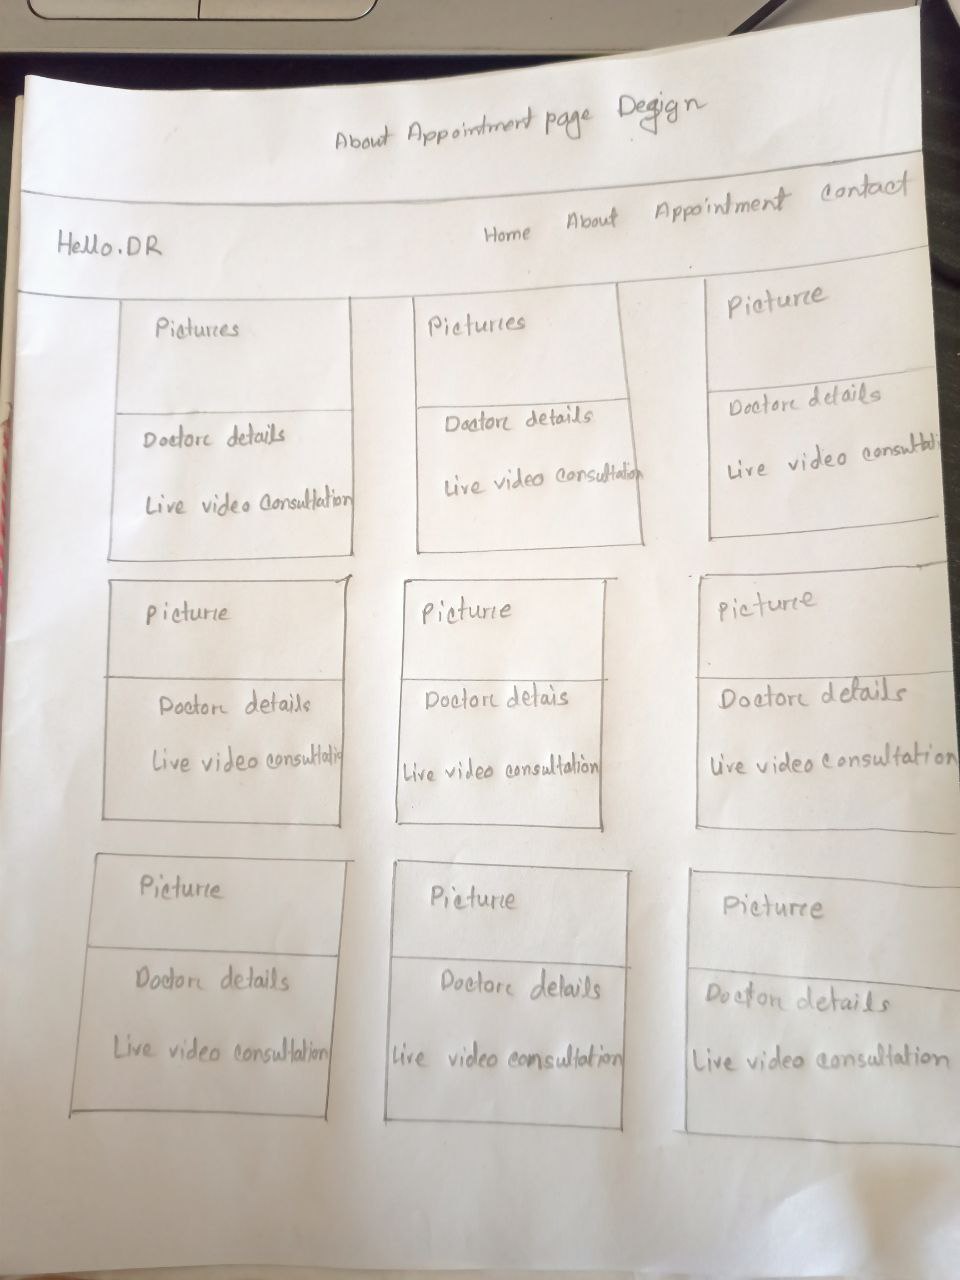 About Appointment page Degign
Hello.DR
Home About Appointment Contact
Pictures
Doctor details
Live video Consultation
Pictures
Doctor details
Live video Consultation
Picture
Doctor details
Live video consultati
Picture
Doctor details
Live video consultatio
Picture
Doctor detais
Live video consultation
Picture
Doctor details
Live video consultation
Picture
Doctor details
Live video consultation
Picture
Doctor details
Live video consultation
Picture
Doctor details
Live video consultation